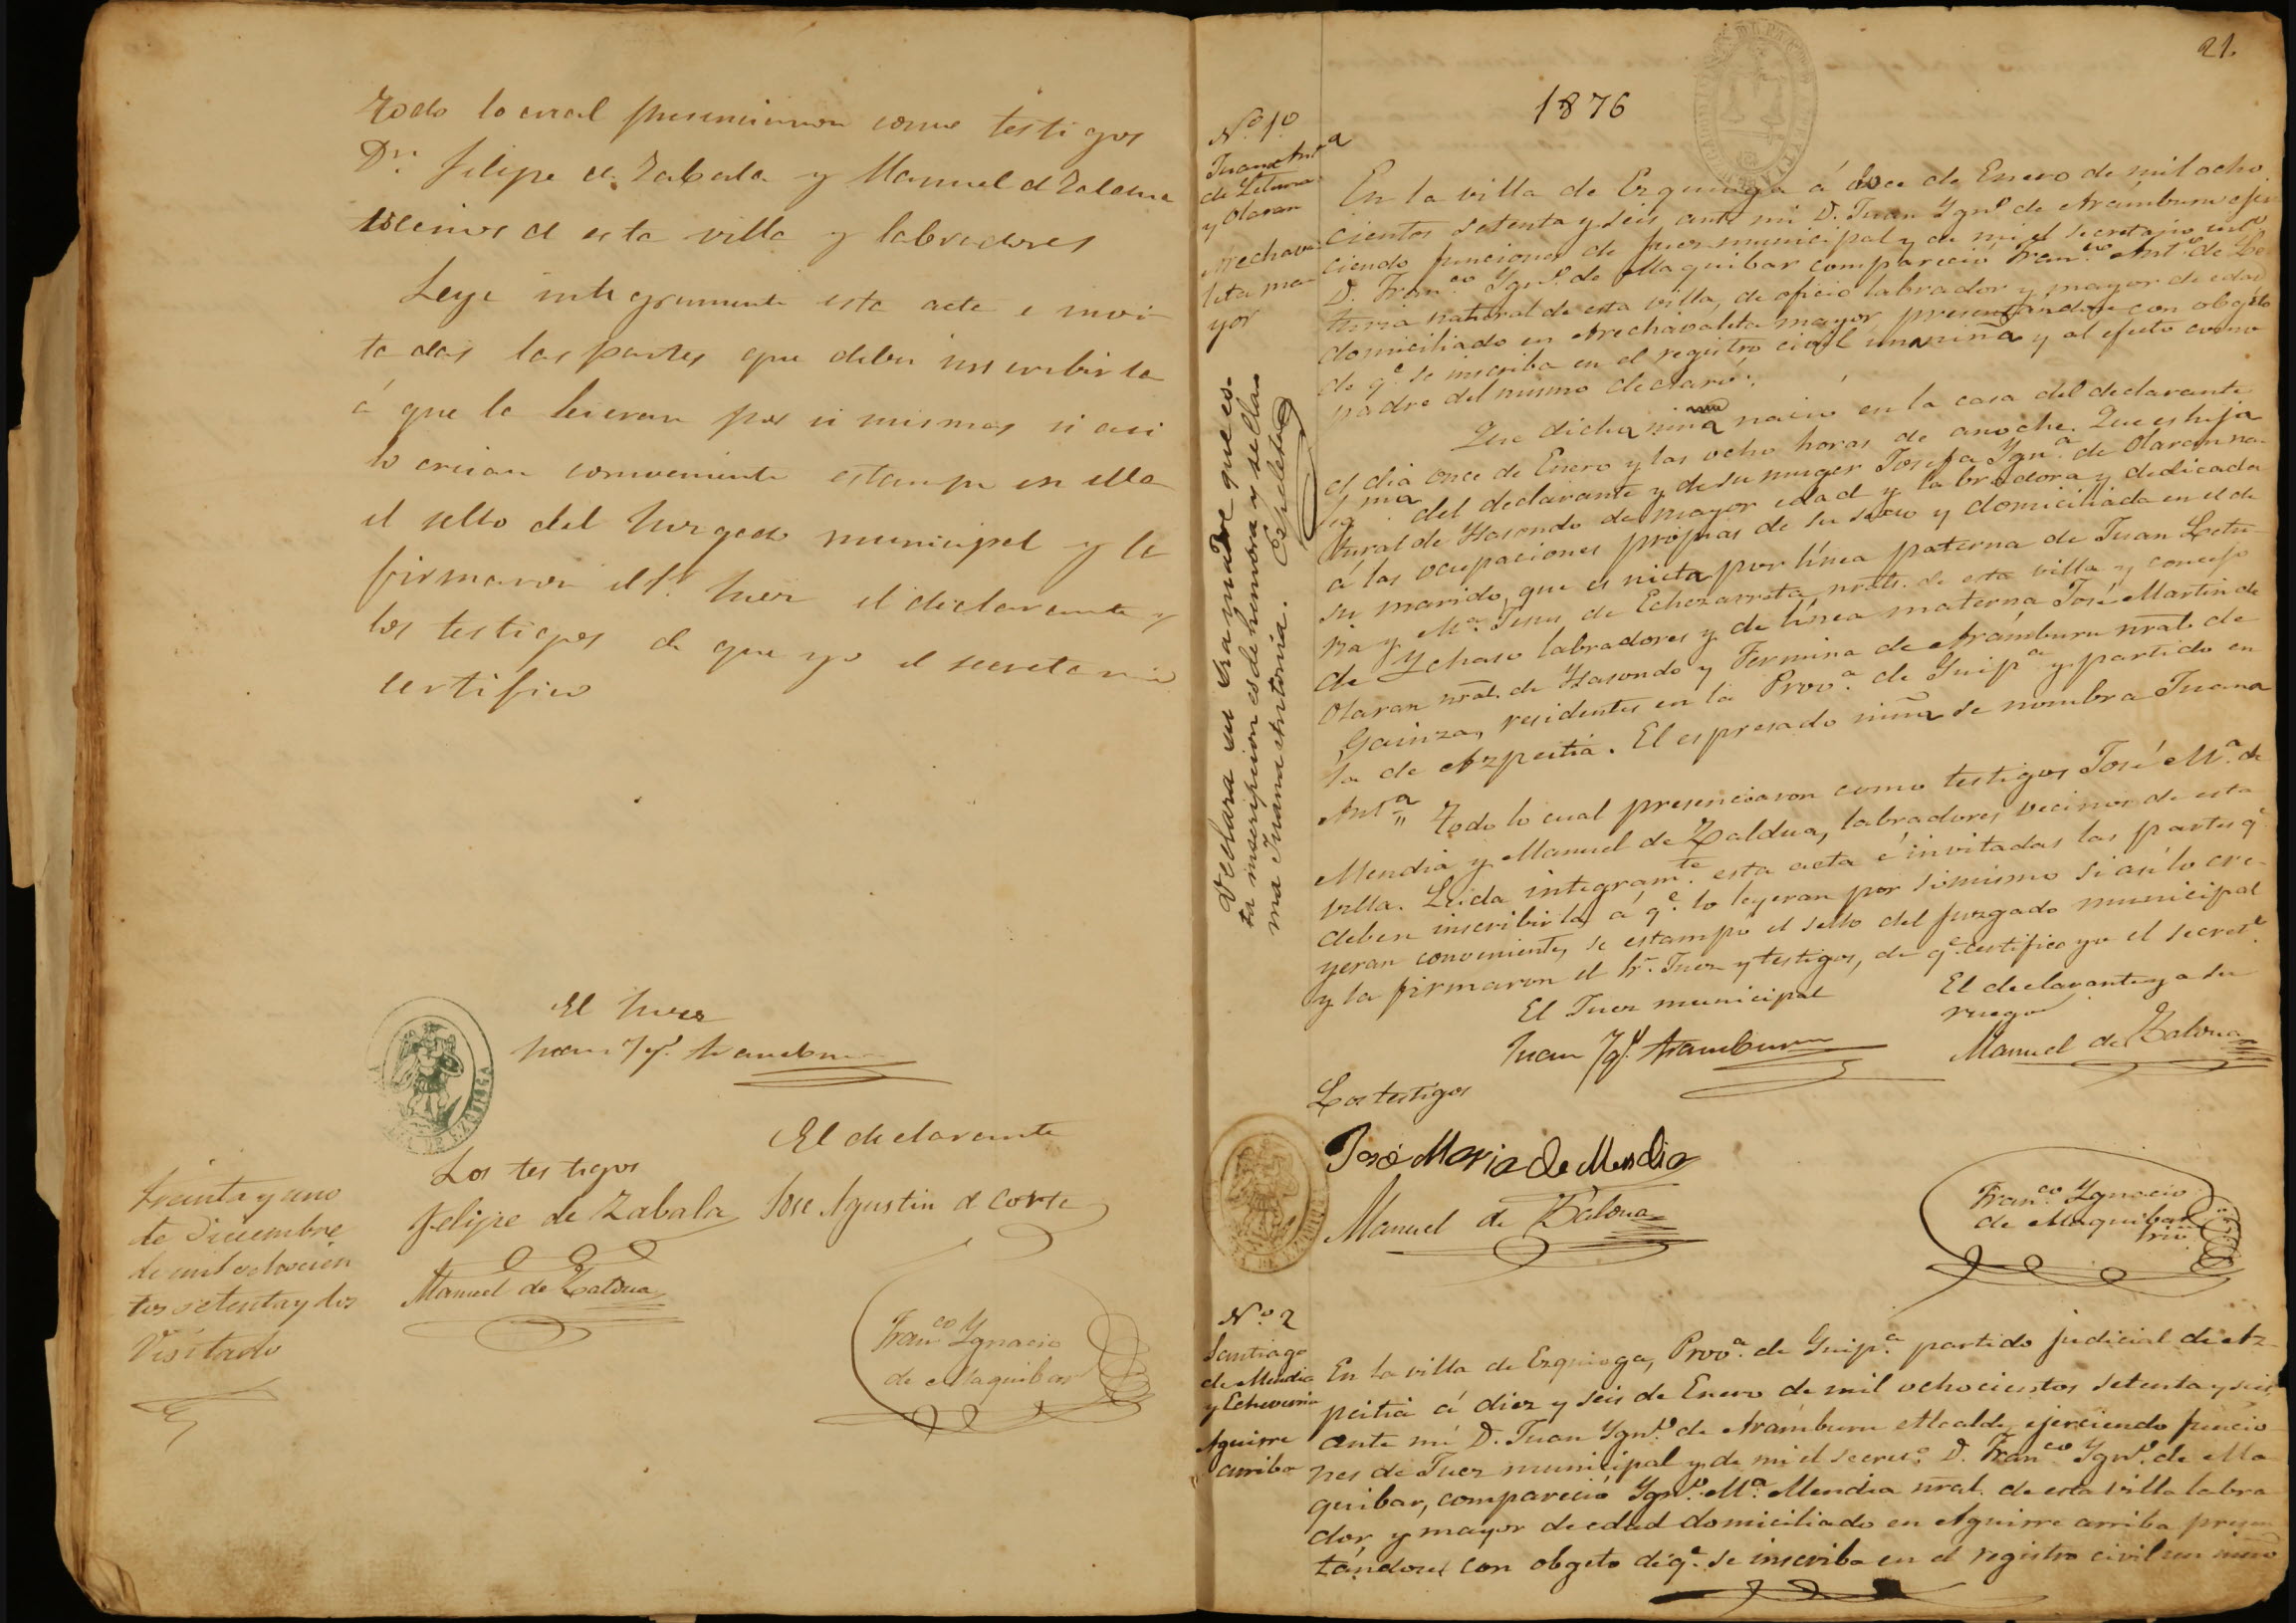 todo lo cual presenciaron como testigos
Dn. Felipe de Zabala y Manuel de Zaldua
vecinos de esta villa y labradores
Leyi integramente esta acta e invi-
tadas las partes que deben inscribirla
á que la leieran por si mismas si asi
lo creian conveniente estampe en ella
el sello del Juzgado municipal y la
firmaron el Sr. Juez el declarante y
los testigos de que yo el secretario
certifico
El Juez
Juan Ygo. Aramburu
El declarante
Los testigos
Felipe de Zabala
Jose Agustin de Corta
Manuel de Zaldua
Franco Ygnacio
de Maquibar
treinta y uno
de Diciembre
de mil ochocien
tos setenta y dos
Visitado
21.
1876
No. 1o
Juana Anta
de Leturia
y Olaran
Arechava-
leta ma-
yor
En la villa de Ezquioga á doce de Enero de mil ocho-
cientos setenta y seis ante mi D. Juan Ygno. de Arámburu ejer-
ciendo funciones de Juez municipal y de mi el secretario
D. Franco. Ygno. de Maquibar compareció Franco. Anto. de Le-
turia natural de esta villa, de oficio labrador y mayor de edad
domiciliado en Arechavaleta mayor presentándose con objeto
de qe. se inscriba en el registro civil una niña y al efecto como
padre del mismo declaró:
Que dicha niña nació en la casa del declarante
el dia once de Enero y las ocho horas de anoche. Que es hija
legma. del declarante y de su muger Josefa Ygna. de Olaran na-
tural de Ytasondo de mayor edad y labradora y dedicada
á las ocupaciones propias de su sexo y domiciliada en el de
su marido, que es nieta por línea paterna de Juan Letu-
ria y Ma. Jesus de Echezarreta nrals. de esta villa y concejo
de Ychaso labradores y de línea materna José Martin de
Olaran nral. de Ytasondo y Fermina de Arámburu nral. de
Gainza, residentes en la Prova. de Guipa. y partido en
la de Azpeitia. El espresado niña se nombra Juana
Anta.
Todo lo cual presenciaron como testigos José Ma. de
Mendia y Manuel de Zaldua, labradores, vecinos de esta
villa. Leida integramte. esta acta é invitadas las partes qe.
deben inscribirla á qe. lo leyeran por sí mismo si así lo cre-
yeran conveniente, se estampó el sello del juzgado municipal
y la firmaron el Sr. Juez y testigos, de qe. certifico yo el secreto.
El Juez municipal
Juan Ygo. Aramburu
El declarante y a su
ruego
Manuel de Zaldua
Los testigos
José Maria de Mendia
Manuel de Zaldua
Franco. Ygnacio
de Maquibar
Srio.
Declara su Sra madre que es-
ta inscripcion es de hembra y se lla-
ma Juana Antonia. Ezpeleta
No. 2
Santiago
de Mendia
y Echeverria
Aguirre
arriba
En la villa de Ezquioga, Prova. de Guipa. partido judicial de Az-
peitia á diez y seis de Enero de mil ochocientos setenta y seis
ante mi D. Juan Ygno. de Arámburu Alcalde, ejerciendo funcio-
nes de Juez municipal y de mi el secreto. D. Franco. Ygno. de Ma-
quibar, compareció Ygno. Ma. Mendia nral. de esta villa labra-
dor, y mayor de edad domiciliado en Aguirre arriba presen-
tándose con obgeto de qe. se inscriba en el registro civil un niño